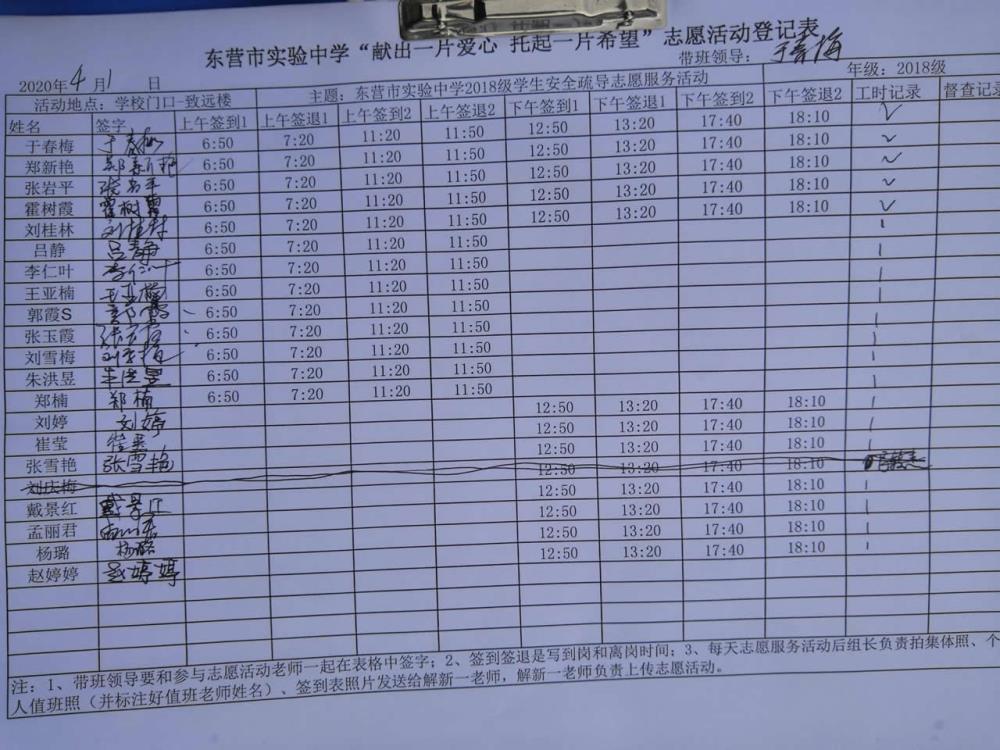 东营市实验中学“献出一片爱心 托起一片希望”志愿活动登记表
2020年4月1日 带班领导：于春梅
活动地点：学校门口-致远楼 主题：东营市实验中学2018级学生安全疏导志愿服务活动 年级：2018级
姓名 签字 上午签到1 上午签退1 上午签到2 上午签退2 下午签到1 下午签退1 下午签到2 下午签退2 工时记录 督查记录
于春梅 于春梅 6:50 7:20 11:20 11:50 12:50 13:20 17:40 18:10 ✓
郑新艳 郑新艳 6:50 7:20 11:20 11:50 12:50 13:20 17:40 18:10 ✓
张岩平 张岩平 6:50 7:20 11:20 11:50 12:50 13:20 17:40 18:10 ✓
霍树霞 霍树霞 6:50 7:20 11:20 11:50 12:50 13:20 17:40 18:10 ✓
刘桂林 刘桂林 6:50 7:20 11:20 11:50 12:50 13:20 17:40 18:10 ✓
吕静 吕静 6:50 7:20 11:20 11:50 1
李仁叶 李仁叶 6:50 7:20 11:20 11:50 1
王亚楠 王亚楠 6:50 7:20 11:20 11:50 1
郭霞S 郭霞 6:50 7:20 11:20 11:50 1
张玉霞 张玉霞 6:50 7:20 11:20 11:50 1
刘雪梅 刘雪梅 6:50 7:20 11:20 11:50 1
朱洪昱 朱洪昱 6:50 7:20 11:20 11:50 1
郑楠 郑楠 6:50 7:20 11:20 11:50 1
刘婷 刘婷 12:50 13:20 17:40 18:10 1
崔莹 崔莹 12:50 13:20 17:40 18:10 1
张雪艳 张雪艳 12:50 13:20 17:40 18:10 1
刘庆梅 12:50 13:20 17:40 18:10
戴景红 戴景红 12:50 13:20 17:40 18:10 1
孟丽君 12:50 13:20 17:40 18:10 1
杨璐 杨璐 12:50 13:20 17:40 18:10 1
赵婷婷 赵婷婷 12:50 13:20 17:40 18:10 1
注：1、带班领导要和参与志愿活动老师一起在表格中签字；2、签到签退是写到岗和离岗时间；3、每天志愿服务活动后组长负责拍集体照、个
人值班照（并标注好值班老师姓名）、签到表照片发送给解新一老师，解新一老师负责上传志愿活动。